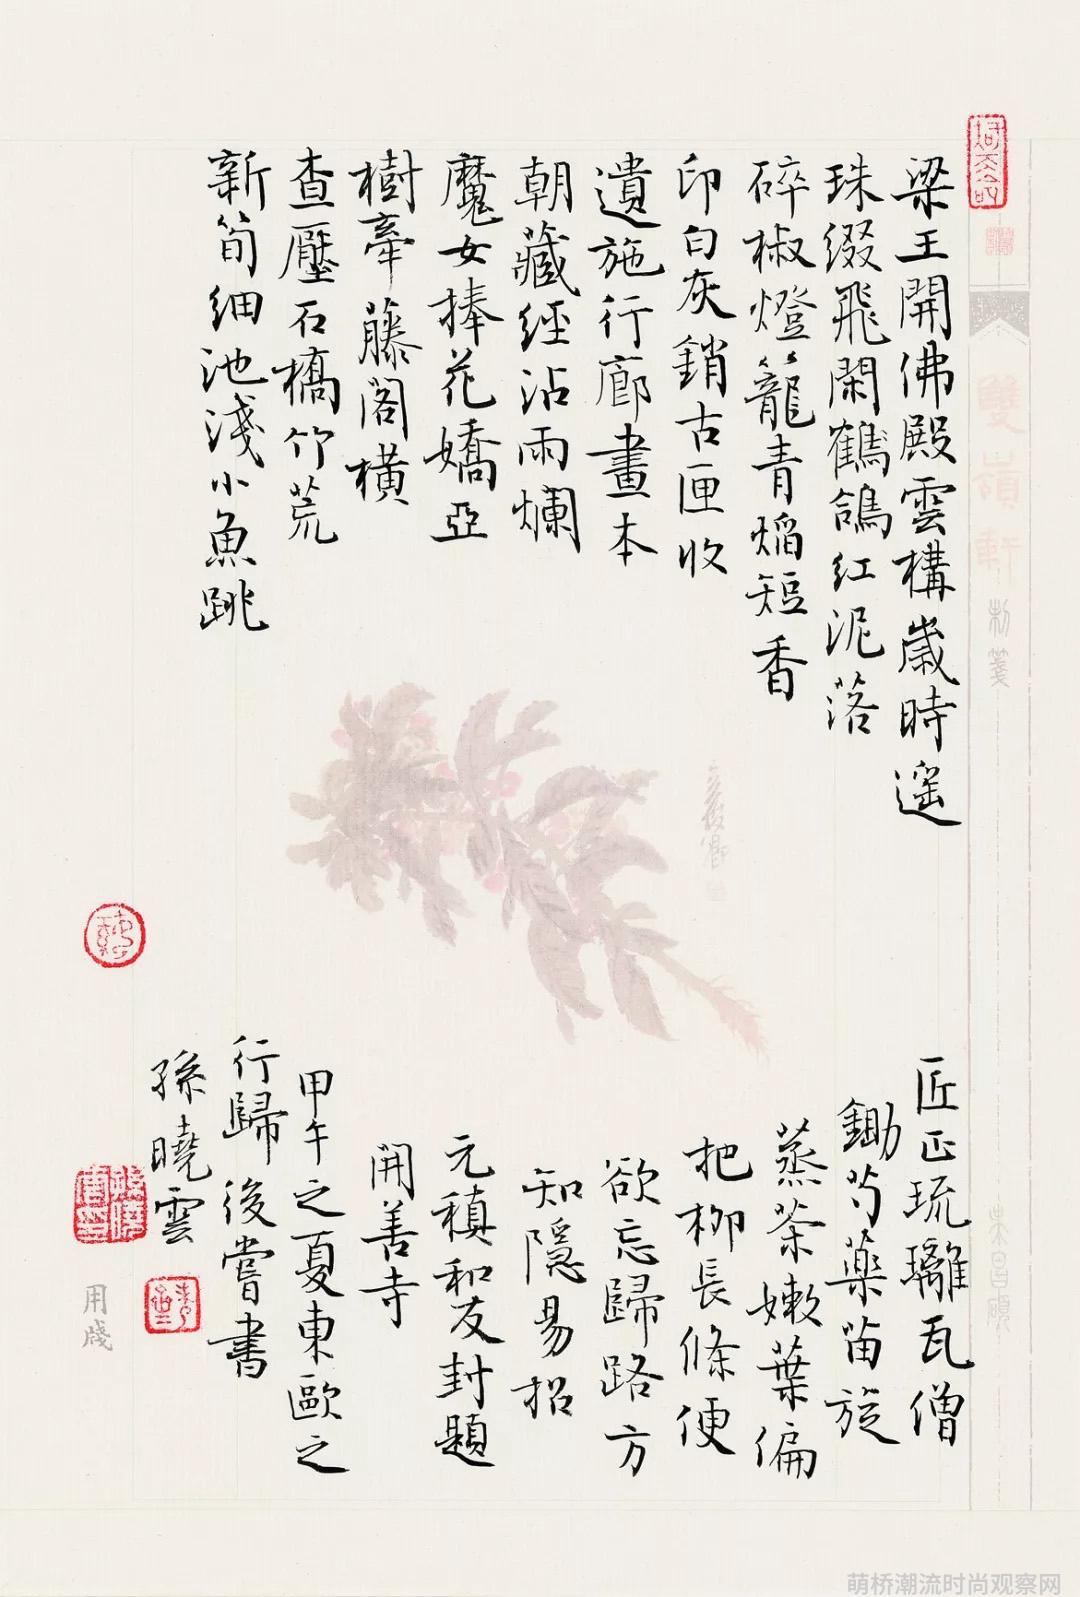 梁王開佛殿雲構歲時遥
珠缀飛閑鶴鴿红泥落
碎椒燈籠青焰短香
印白灰銷古匣收
遺施行廊畫本
朝藏經沾雨爛
魔女捧花嬌亞
樹牽藤阁橫
查壓石橋竹荒
新筍细池淺小魚跳
匠正琉璃瓦僧
鋤芍藥苗旋
蒸茶嫩葉偏
把柳長條便
欲忘歸路方
知隱易招
元稹和友封題
開善寺
甲午之夏東歐之
行歸後嘗書
孫曉雲
雙嶺軒
制箋
朱昌頤
用牋
萌桥潮流时尚观察网